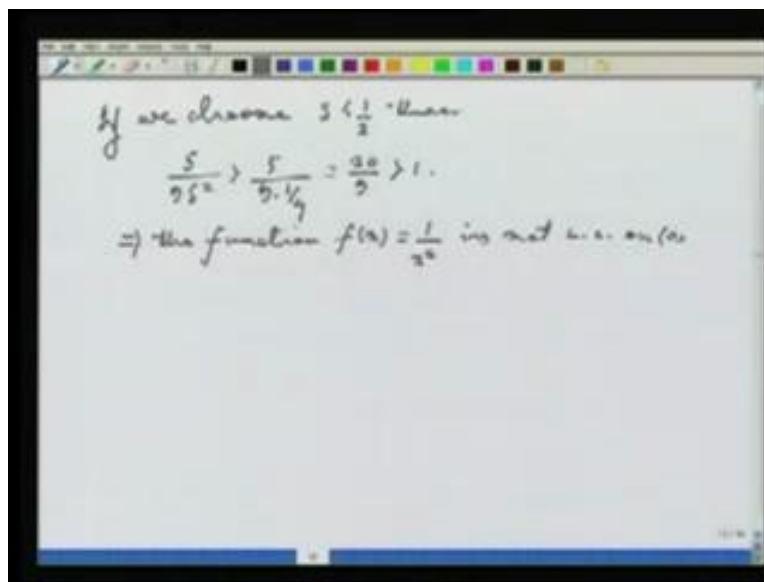 If we choose δ < 1/2 then
5/9δ² > 5/9·1/4 = 20/9 > 1.
⇒ the function f(x) = 1/x² is not u.c. on (0